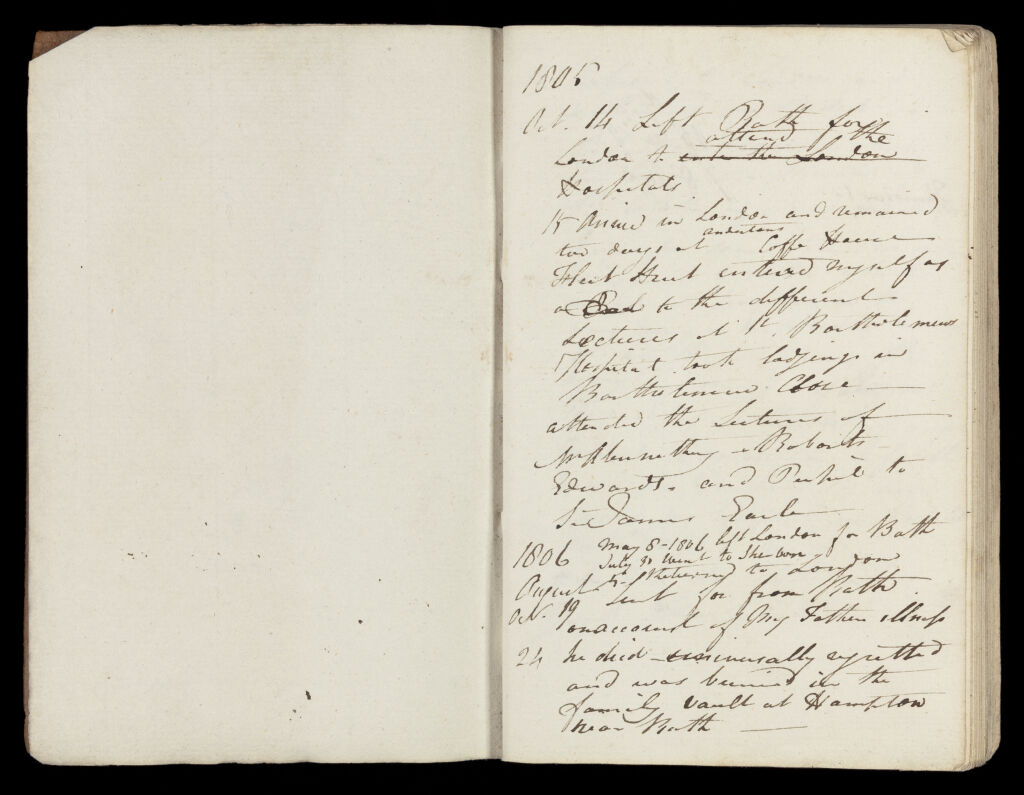 1805
Oct. 14 Left Bath for
London to attend the
enter the London
Hospitals
15 Arrived in London and remained
two days at andertons Coffe House
Fleet Street entered myself as
a to the different
Lectures at St. Bartholemews
Hospital took lodgings in
Bartholemew Close —
attended the Lectures of
Mr Abernethy & Roberts
Edwards. and Pupil to
Sir James Earle
1806 May 8 - 1806 left London for Bath
July 30 went to Sherborne
August Returned to London
Oct. 19 Sent for from Bath
on account of My Father illness
24 he died — universally regretted
and was buried in the
family vault at Hampton
near Bath —